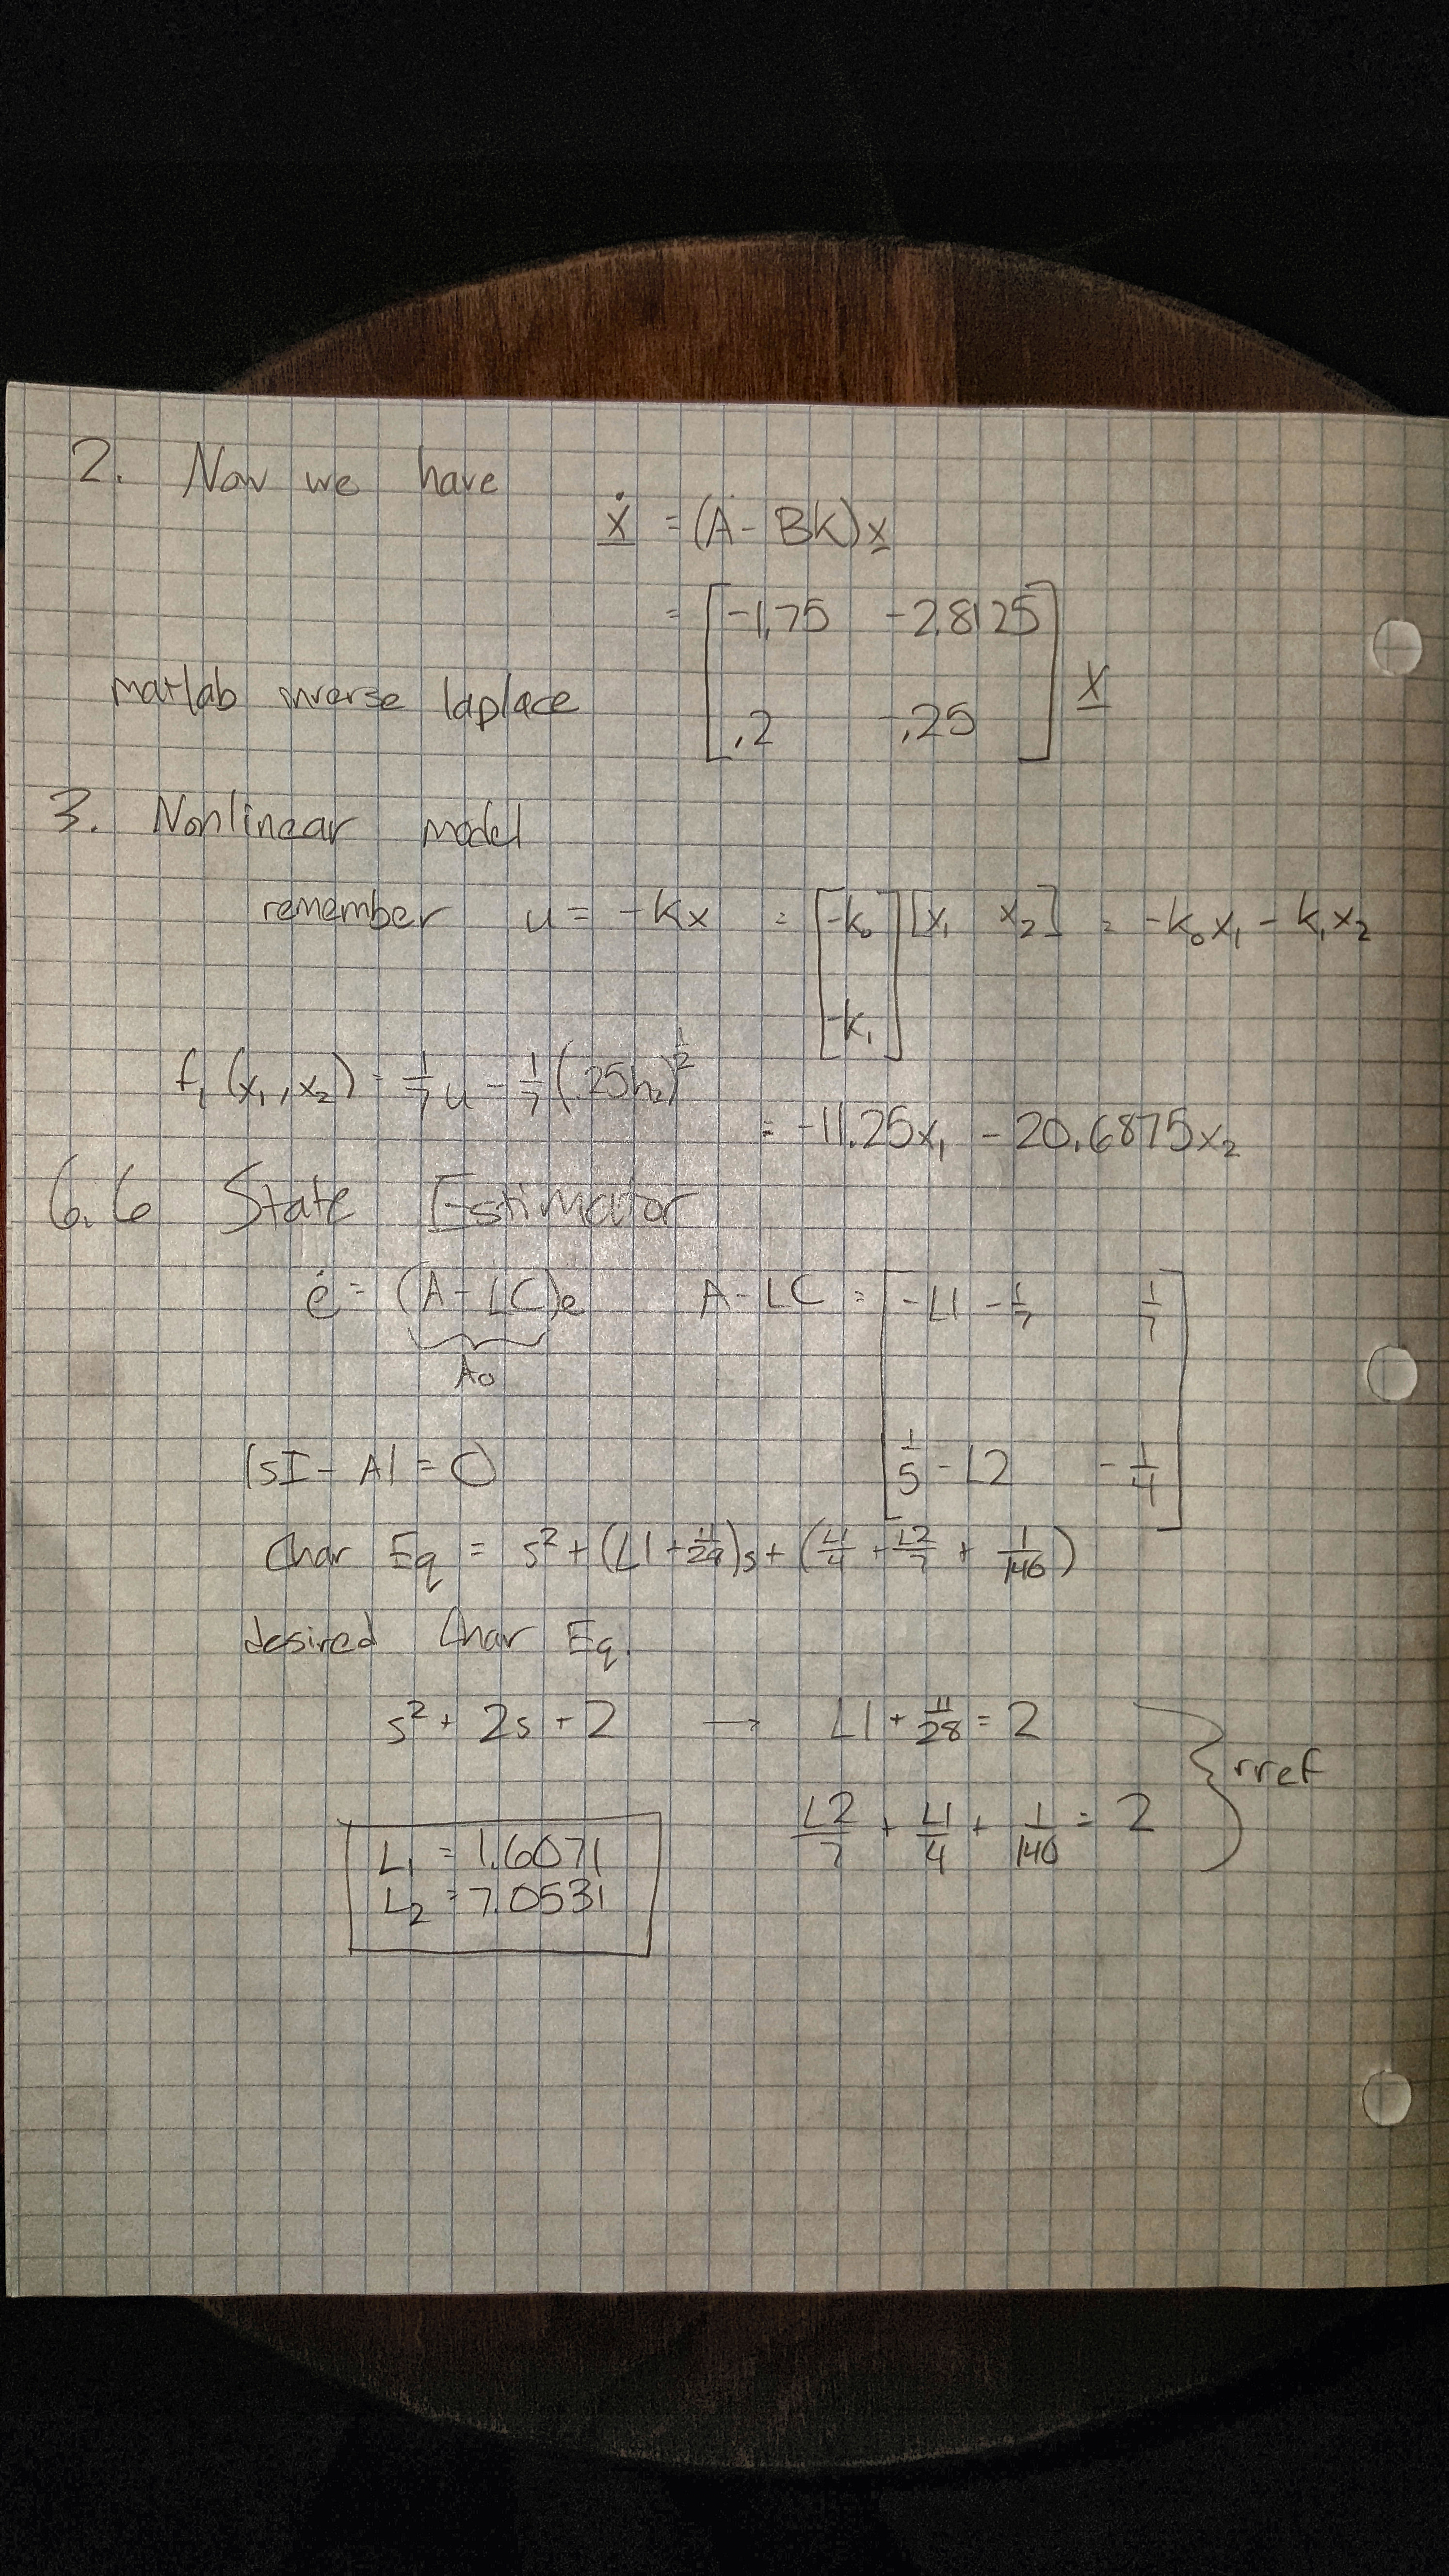 2. Now we have
ẋ = (A - BK)x
= [-1.75 -2.8125
.2 -.25] x
matlab inverse laplace
3. Nonlinear model
remember u = -Kx = [-k₀ -k₁] [x₁ x₂] = -k₀x₁ - k₁x₂
f₁(x₁,x₂) = 1/7 u - 1/7 (.25h₂)^1/2
= -11.25x₁ - 20.6875x₂
6.6 State Estimator
ė = (A - LC)e A - LC = [-L1 - 1/7 1/7
A₀ 1/5 - L2 -1/4]
|sI - A| = 0
Char Eq = s² + (L1 + 11/28)s + (L1/4 + L2/7 + 1/140)
desired Char Eq.
s² + 2s + 2 → L1 + 11/28 = 2
L2/7 + L1/4 + 1/140 = 2 } rref
L₁ = 1.6071
L₂ = 7.0531